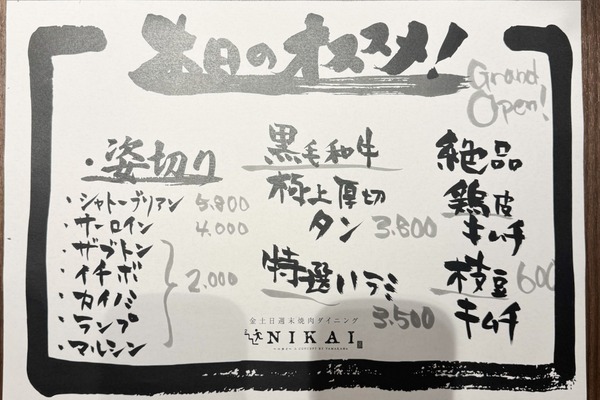 本日のオススメ!
Grand Open!
・姿切り
・シャトーブリアン 5.800
・サーロイン 4.000
・ザブトン
・イチボ
・カイノミ
・ランプ
・マルシン
2.000
黒毛和牛
極上厚切
タン 3.800
特選ハラミ
3.500
絶品
鶏皮
キムチ
枝豆 600
キムチ
金土日週末焼肉ダイニング
NIKAI